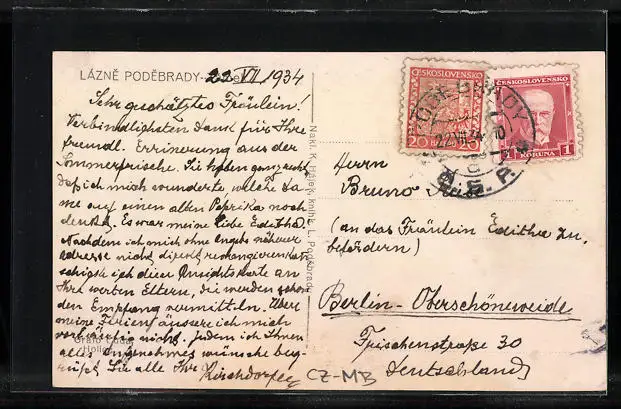 LÁZNĚ PODĚBRADY
22 VII 1934
Sehr geschätztes Fräulein!
Verbindlichsten Dank für Ihre
freundl. Erinnerung aus der
Sommerfrische. Sie haben ganz recht,
daß ich mich wunderte, welche Da-
me auf einen alten Paprika noch
denkt. Es war meine liebe Editha.
Nachdem ich mich ohne
adresse nicht direkt revangieren kann
schicke ich diese Ansichtskarte an
Ihre werten Eltern, die werden schon
den Empfang vermitteln. Über
meine Ferien äussere ich mich
nicht. Indem ich Ihnen
alles Angenehmes wünsche beg-
rüßt Sie alle Ihr
Kirschdorfer
Grafo Čuda
Holice
Nakl. K. Hájek, knihk. L. Poděbrady
ČESKOSLOVENSKO
20
ČESKOSLOVENSKO
1 KORUNA 1
PODĚBRADY
22.VII.34
Herrn
Bruno
(an das Fräulein Editha zu
befördern)
Berlin - Oberschöneweide
Frischenstraße 30
Deutschland
CZ-MB